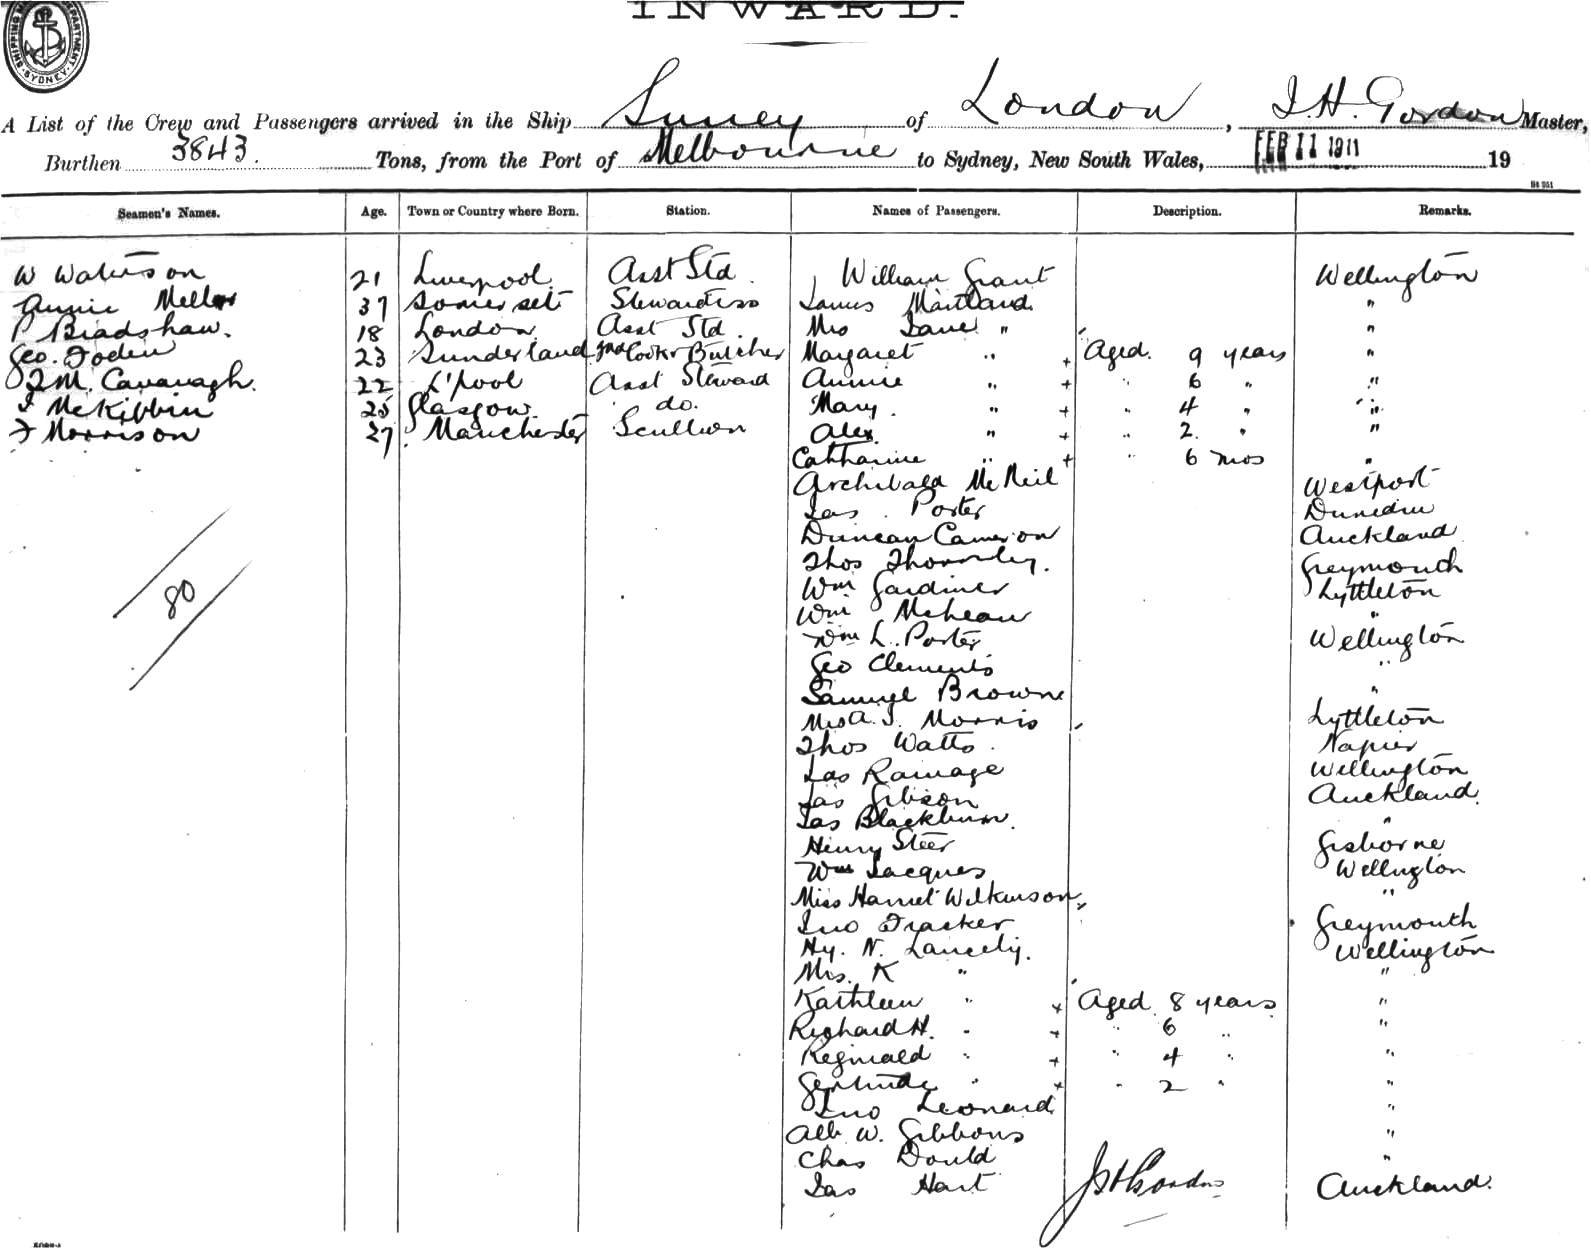 SHIPPING MASTER'S DEPARTMENT SYDNEY
INWARD.
A List of the Crew and Passengers arrived in the Ship Surrey of London, J. H. Gordon Master,
Burthen 3843. Tons, from the Port of Melbourne to Sydney, New South Wales, FEB 11 1911 19
Seamen's Names. Age. Town or Country where Born. Station. Names of Passengers. Description. Remarks.
W Waterson 21 Liverpool Asst Std. William Grant Wellington
Annie Mellor 37 Somerset Stewardess James Maitland "
P Bradshaw. 18 London Asst Std. Mrs Jane " "
Geo. Foden 23 Sunderland 2nd Cook & Butcher Margaret " + Aged. 9 years "
J M. Cavanagh. 22 L'pool Asst Steward Annie " + " 6 " "
J McKibbin 25 Glasgow. do. Mary. " + " 4 " "
F Morrison 27 Manchester Scullion Alex. " + " 2. " "
Catharine " + " 6 mos "
Archibald McNeil Westport
Jas. Porter Dunedin
Duncan Cameron Auckland
Thos Thornley. Greymouth
Wm Gardiner Lyttleton
Wm McLean "
Wm L. Porter Wellington
Geo Clements "
Samuel Browne "
Mrs A. J. Morris Lyttleton
Thos Watts. Napier
Jas Ramage Wellington
Jas Gibson Auckland.
Jas Blackburn. "
80
Henry Steer Gisborne
Wm Jacques Wellington
Miss Harriet Wilkinson "
Jno Tracker Greymouth
Hy. N. Lancely. Wellington
Mrs. K " "
Kathleen " + Aged 8 years "
Richard H. " + " 6 " "
Reginald " + " 4 " "
Gertrude " + " 2 " "
Jno Leonard "
Alb W. Gibbons "
Chas Dould "
Jas Hart J H Gordon Auckland.